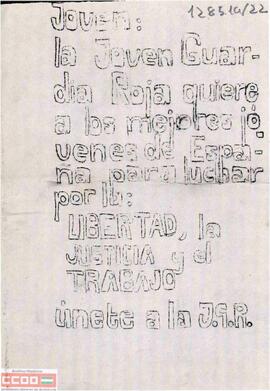 128510/22
Joven:
la Joven Guar-
dia Roja quiere
a los mejores jó-
venes de Espa-
ña para luchar
por la:
LIBERTAD, la
JUSTICIA y el
TRABAJO
únete a la J.G.R.
CCOO